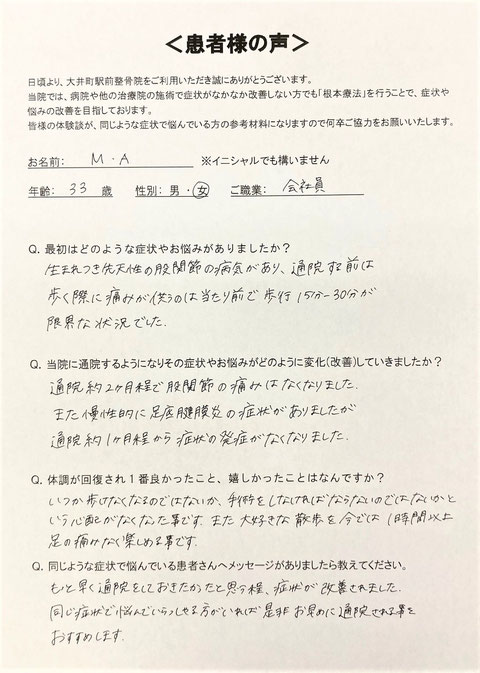 ＜患者様の声＞
日頃より、大井町駅前整骨院をご利用いただき誠にありがとうございます。
当院では、病院や他の治療院の施術で症状がなかなか改善しない方でも「根本療法」を行うことで、症状や
悩みの改善を目指しております。
皆様の体験談が、同じような症状で悩んでいる方の参考材料になりますので何卒ご協力をお願いいたします。
お名前： M．A ※イニシャルでも構いません
年齢： 33 歳 性別：男・女 ご職業： 会社員
Q. 最初はどのような症状やお悩みがありましたか？
生まれつき先天性の股関節の病気があり、通院する前は
歩く際に痛みが伴うのは当たり前で歩行15分-30分が
限界な状況でした.
Q. 当院に通院するようになりその症状やお悩みがどのように変化(改善)していきましたか？
通院約2ヶ月程で股関節の痛みはなくなりました.
また慢性的に足底腱膜炎の症状がありましたが
通院約1ヶ月程から症状の発症がなくなりました.
Q. 体調が回復され１番良かったこと、嬉しかったことはなんですか？
いつか歩けなくなるのではないか、手術をしなければならないのではないかと
いう心配がなくなった事です. また大好きな散歩を今では1時間以上
足の痛みなく楽しめる事です.
Q. 同じような症状で悩んでいる患者さんへメッセージがありましたら教えてください。
もっと早く通院をしておきたかったと思う程、症状が改善されました.
同じ症状で悩んでいらっしゃる方がいれば是非お早めに通院される事を
おすすめします.